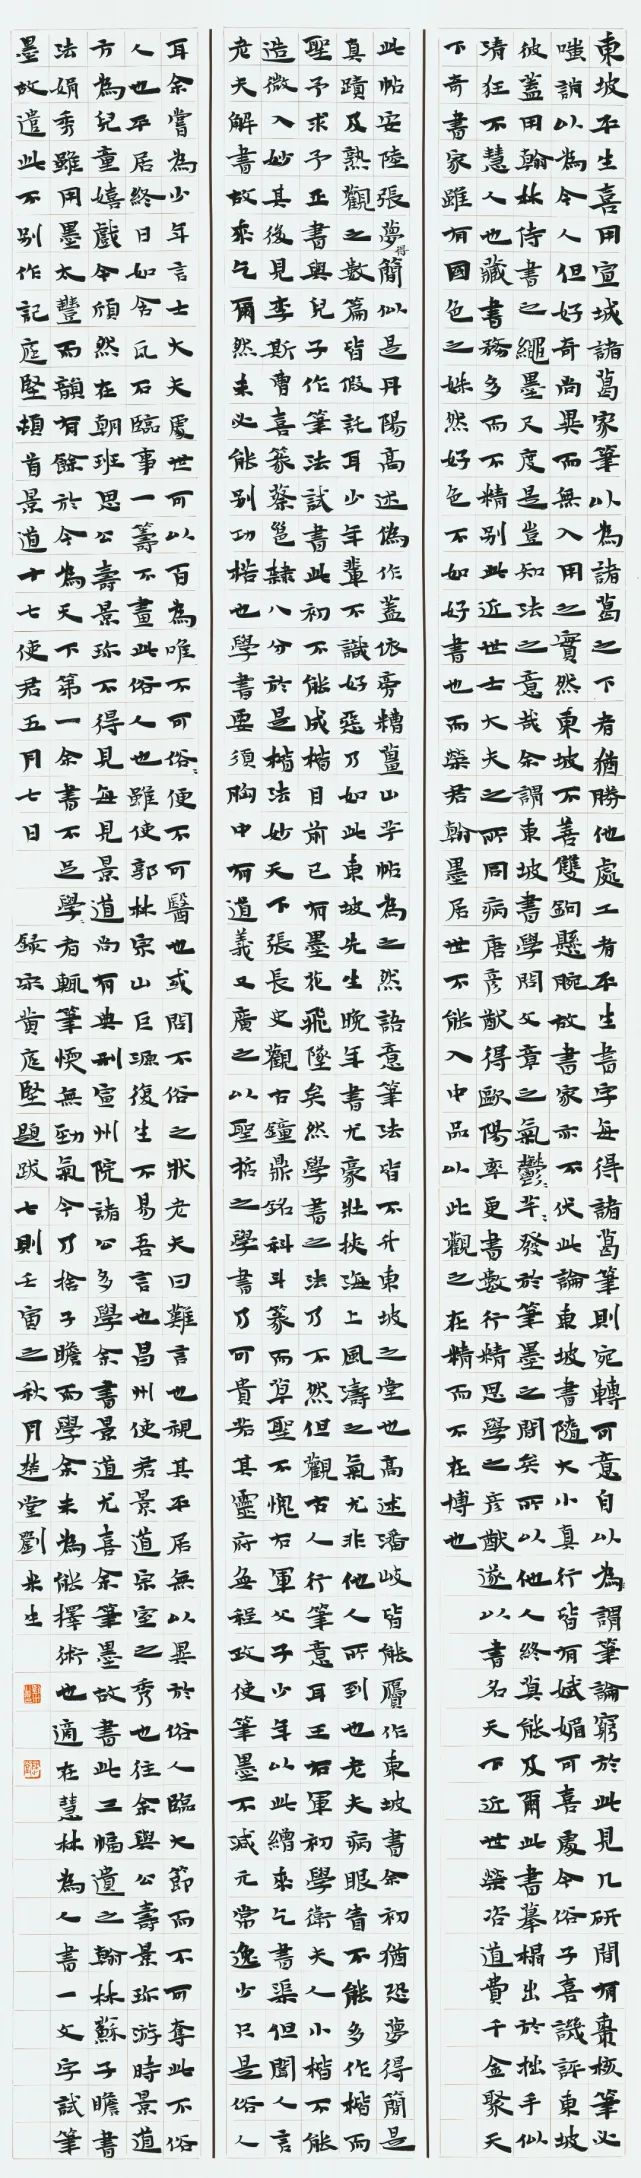 東坡平生喜用宣城諸葛家筆以為諸葛之下者猶勝他處工者平生書字每得諸葛筆則宛轉可意自以為謂筆論窮於此見几研間有棗核筆必
嗤誚以為今人但好奇尚異而無入用之實然東坡不善雙鉤懸腕故書家亦不伏此論東坡書隨大小真行皆有娬媚可喜處今俗子喜譏評東坡
彼蓋用翰林侍書之繩墨尺度是豈知法之意哉余謂東坡書學問文章之氣鬱〻芊〻發於筆墨之間矣所以他人終莫能及爾此書摹榻出於拙手似
清狂不慧人也藏書務多而不精別此近世士大夫之所同病唐彥猷得歐陽率更書數行精思學之彥猷遂以書名天下近世榮咨道費千金聚天
下奇書家雖有國色之姝然好色不如好書也而榮君翰墨居世不能入中品以此觀之在精而不在博也
此帖安陸張夢得簡似是丹陽高述偽作蓋依旁糟薑山芋帖為之然語意筆法皆不升東坡之堂也高述潘岐皆能贗作東坡書余初猶恐夢得簡是
真蹟及熟觀之數篇皆假託耳少年輩不識好惡乃如此東坡先生晚年書尤豪壯挾海上風濤之氣尤非他人所到也老夫病眼眚不能多作楷而
聖予求予正書與兒子作筆法試書此初不能成楷目前已有墨花飛墜矣然學書之法乃不然但觀古人行筆意耳王右軍初學衛夫人小楷不能
造微入妙其後見李斯曹喜篆蔡邕隸八分於是楷法妙天下張長史觀古鐘鼎銘科斗篆而草聖不愧右軍父子少年以此繒來乞書渠但聞人言
老夫解書故來乞爾然未必能別功楛也學書要須胸中有道義又廣之以聖哲之學書乃可貴若其靈府無程政使筆墨不減元常逸少只是俗人
耳余嘗為少年言士大夫處世可以百為唯不可俗〻便不可醫也或問不俗之狀老夫曰難言也視其平居無以異於俗人臨大節而不可奪此不俗
人也平居終日如含瓦石臨事一籌不畫此俗人也雖使郭林宗山巨源復生不易吾言也昌州使君景道宗室之秀也往余與公壽景珍游時景道
方為兒童嬉戲今頎然在朝班思公壽景珍不得見每見景道尚有典刑宣州院諸公多學余書景道尤喜余筆墨故書此三幅遺之翰林蘇子瞻書
法娟秀雖用墨太豐而韻有餘於今為天下第一余書不足學〻者輒筆愞無勁氣今乃捨子瞻而學余未為能擇術也適在慧林為人書一文字試筆
墨故遣此不別作記庭堅頓首景道十七使君五月七日錄宋黃庭堅題跋七則壬寅之秋月楚堂劉米生